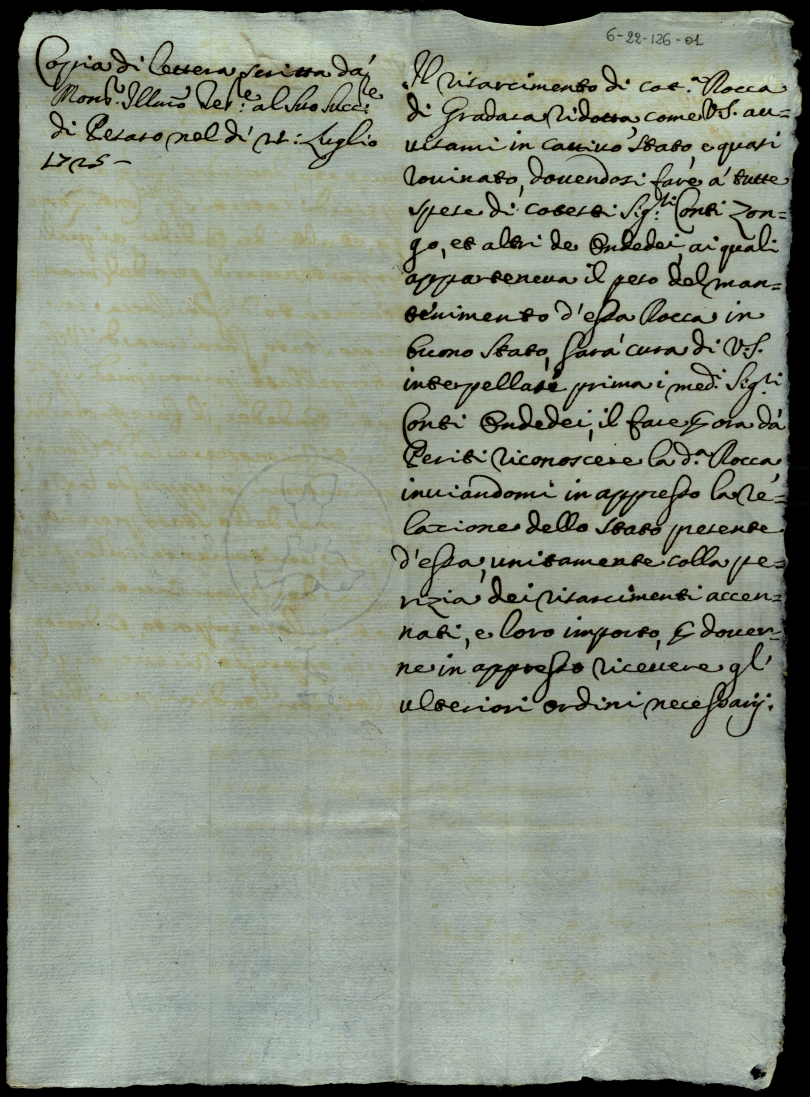 6-22-126-01
Coppia di lettera scritta dá
Mons.r Illmõ Tes.re al suo Succ.re
di Pesaro nel dí 21: Luglio
1725 -
Il risarcimento di cot.a Rocca
di Gradara ridotta, come V.S. au=
uisami in cattiuo stato, e quasi
rouinato, douendosi fare á tutte
spese di cotesti Sig.ri Conti Zon=
go, et altri de Ondedei, ai quali
apparteneua il peso del man=
tenimento d'essa Rocca in
buono stato, sará cura di V.S.
interpellare prima i med.i Sig.ri
Conti Ondedei, il fare ora dá
Periti riconoscere la d.a Rocca
inuiandomi in appresso la re=
lazione dello stato presente
d'essa, unitamente colla pe=
rizia dei risarcimenti accen=
nati, e loro importo, douer=
ne in appresso riceuere gl'
ulteriori ordini necessarij.